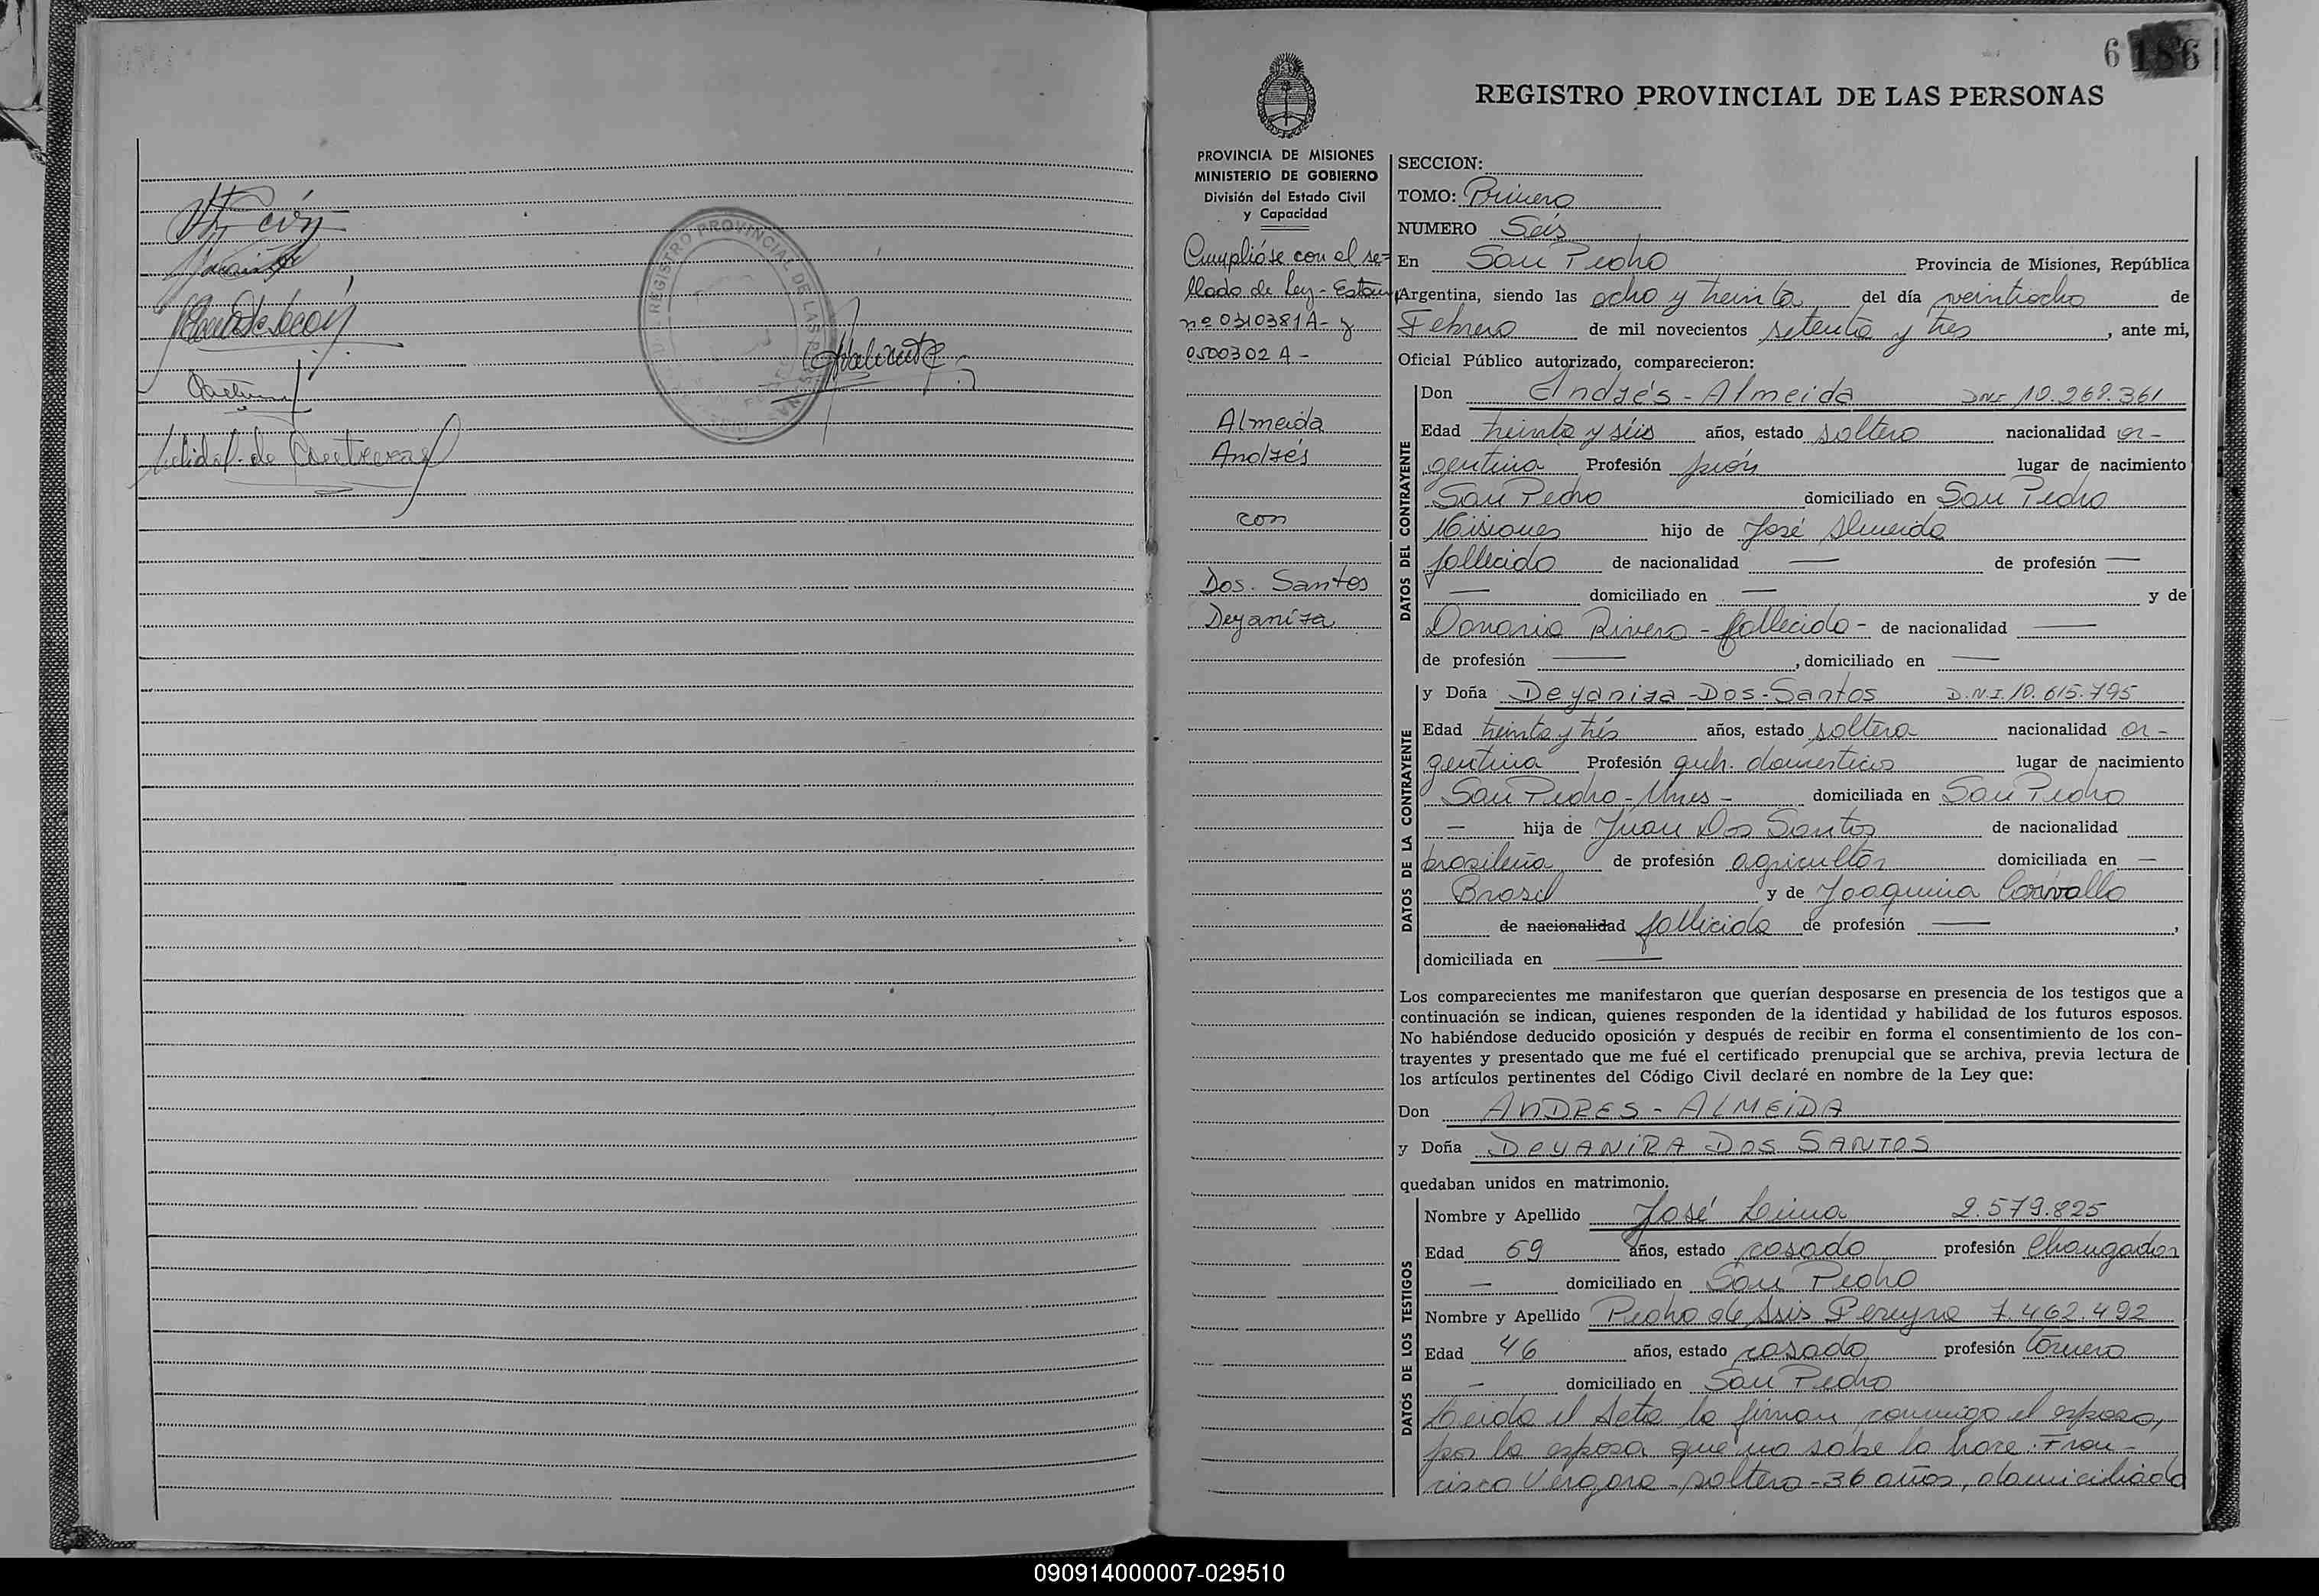 REGISTRO PROVINCIAL DE LAS PERSONAS
6 186
REGISTRO PROVINCIAL DE LAS PERSONAS
PROVINCIA DE MISIONES
MINISTERIO DE GOBIERNO
División del Estado Civil
y Capacidad
Cumplióse con el se-
llado de Ley - Estam
nº 0310381A - y
0500302 A -
Almeida
Andrés
con
Dos. Santos
Deyanira
SECCION:
TOMO: Primero
NUMERO Seis
En San Pedro Provincia de Misiones, República
Argentina, siendo las ocho y treinta del día veintiocho de
Febrero de mil novecientos setenta y tres, ante mi,
Oficial Público autorizado, comparecieron:
DATOS DEL CONTRAYENTE
Don Andrés - Almeida DNI 10.268.361
Edad treinta y séis años, estado soltero nacionalidad ar-
gentina Profesión peón lugar de nacimiento
San Pedro domiciliado en San Pedro
Misiones hijo de José Almeida
fallecido de nacionalidad — de profesión —
— domiciliado en — y de
Rivero - fallecida - de nacionalidad —
de profesión —, domiciliado en —
DATOS DE LA CONTRAYENTE
y Doña Deyanira - Dos - Santos D.N.I. 10.615.795
Edad treinta y trés años, estado soltera nacionalidad ar-
gentina Profesión queh. domesticos lugar de nacimiento
San Pedro - Mnes - domiciliada en San Pedro
— hija de Juan Dos Santos de nacionalidad
brasileña de profesión agricultor domiciliada en —
Brasil y de Joaquina Carvallo
de nacionalidad fallecida de profesión —,
domiciliada en —
Los comparecientes me manifestaron que querían desposarse en presencia de los testigos que a
continuación se indican, quienes responden de la identidad y habilidad de los futuros esposos.
No habiéndose deducido oposición y después de recibir en forma el consentimiento de los con-
trayentes y presentado que me fué el certificado prenupcial que se archiva, previa lectura de
los artículos pertinentes del Código Civil declaré en nombre de la Ley que:
Don ANDRES - ALMEIDA
y Doña DEYANIRA DOS SANTOS
quedaban unidos en matrimonio.
DATOS DE LOS TESTIGOS
Nombre y Apellido José Lima 2.579.825
Edad 69 años, estado casado profesión Changador
— domiciliado en San Pedro
Nombre y Apellido Pedro de Luis Pereyra 7.462.492
Edad 46 años, estado casado profesión tornero
- domiciliado en San Pedro
Leida el Acta la firman conmigo el esposo,
por la esposa que no sabe lo hace Fran-
cisco Vérgara - soltero - 36 años, domiciliado
090914000007-029510